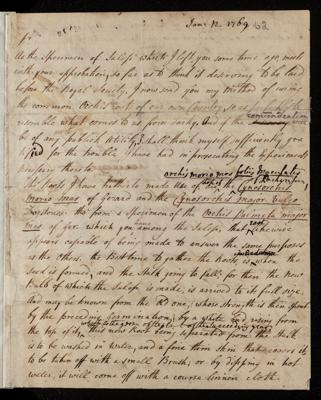 June 12. 1769. 62
Sr
As the Specimen of Salep which I left you some time ago, meets
with your approbation, so far as to think it deserving to be laid
before the Royal Society, I now send you my Method of curing
the common Orchis root of our own Country, so as
resemble what comes to us from Turkey. And if the communication
be of any publick Utility, I shall think myself sufficiently
for the trouble I have had in prosecuting the experiments
necessary thereto.
orchis morio mas foliis maculatis
The Roots I have hitherto made Use of are the Cynosorchis
morio mas of Gerard and the Cynosorchis major vulgo
Dogstones: tho' from a Specimen of the Orchis Palmata major
mas of Ger. which you among the Salep, that root likewise
appears capable of being made to answer the same purposes
as the others. The Best time to gather the Roots is when the
Seed is formed, and the Stalk going to fall; for then the New
Bulb of which the Salep is made, is arrived to its full size,
And may be known from the old one, whose strength is then spent
by the preceding Germination, by a white Bud rising from
the top of it,
This new Root being separated from the Stalk
is to be washed in Water, and a fine thin skin that covers it,
to be taken off with a small Brush; or by dipping in hot
water, it will come off with a course linnen cloth.